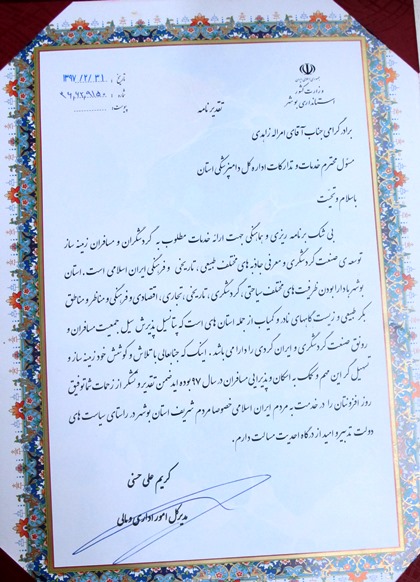 جمهوری اسلامی ایران
وزارت کشور
استانداری بوشهر
تاریخ : ۱۳۹۷/۲/۳۱
شماره :
پیوست: ............
تقدیرنامه
برادر گرامی جناب آقای امراله زاهدی
مسئول محترم خدمات و تدارکات اداره کل دامپزشکی استان
باسلام و تحیت
بی شک برنامه ریزی و هماهنگی جهت ارائه خدمات مطلوب به گردشگران و مسافران زمینه ساز
توسعه ی صنعت گردشگری و معرفی جاذبه های مختلف طبیعی، تاریخی و فرهنگی ایران اسلامی است. استان
بوشهر با دارا بودن ظرفیت های مختلف سیاحتی، گردشگری، تاریخی، تجاری، اقتصادی و فرهنگی و مناظر و مناطق
بکر طبیعی و زیست گاههای نادر و کمیاب از جمله استان های است که پتانسیل پذیرش سیل جمعیت مسافران و
رونق صنعت گردشگری و ایران گردی را دارا می باشد. اینک که جنابعالی با تلاش و کوشش خود زمینه ساز و
تسهیل گر این مهم و کمک به اسکان و پذیرایی مسافران در سال ۹۷ بوده اید ضمن تقدیر و تشکر از زحمات شما توفیق
روز افزونتان را در خدمت به مردم ایران اسلامی خصوصا مردم شریف استان بوشهر در راستای سیاست های
دولت تدبیر و امید از درگاه احدیت مسالت دارم.
کریم علی حسنی
مدیر کل امور اداری و مالی